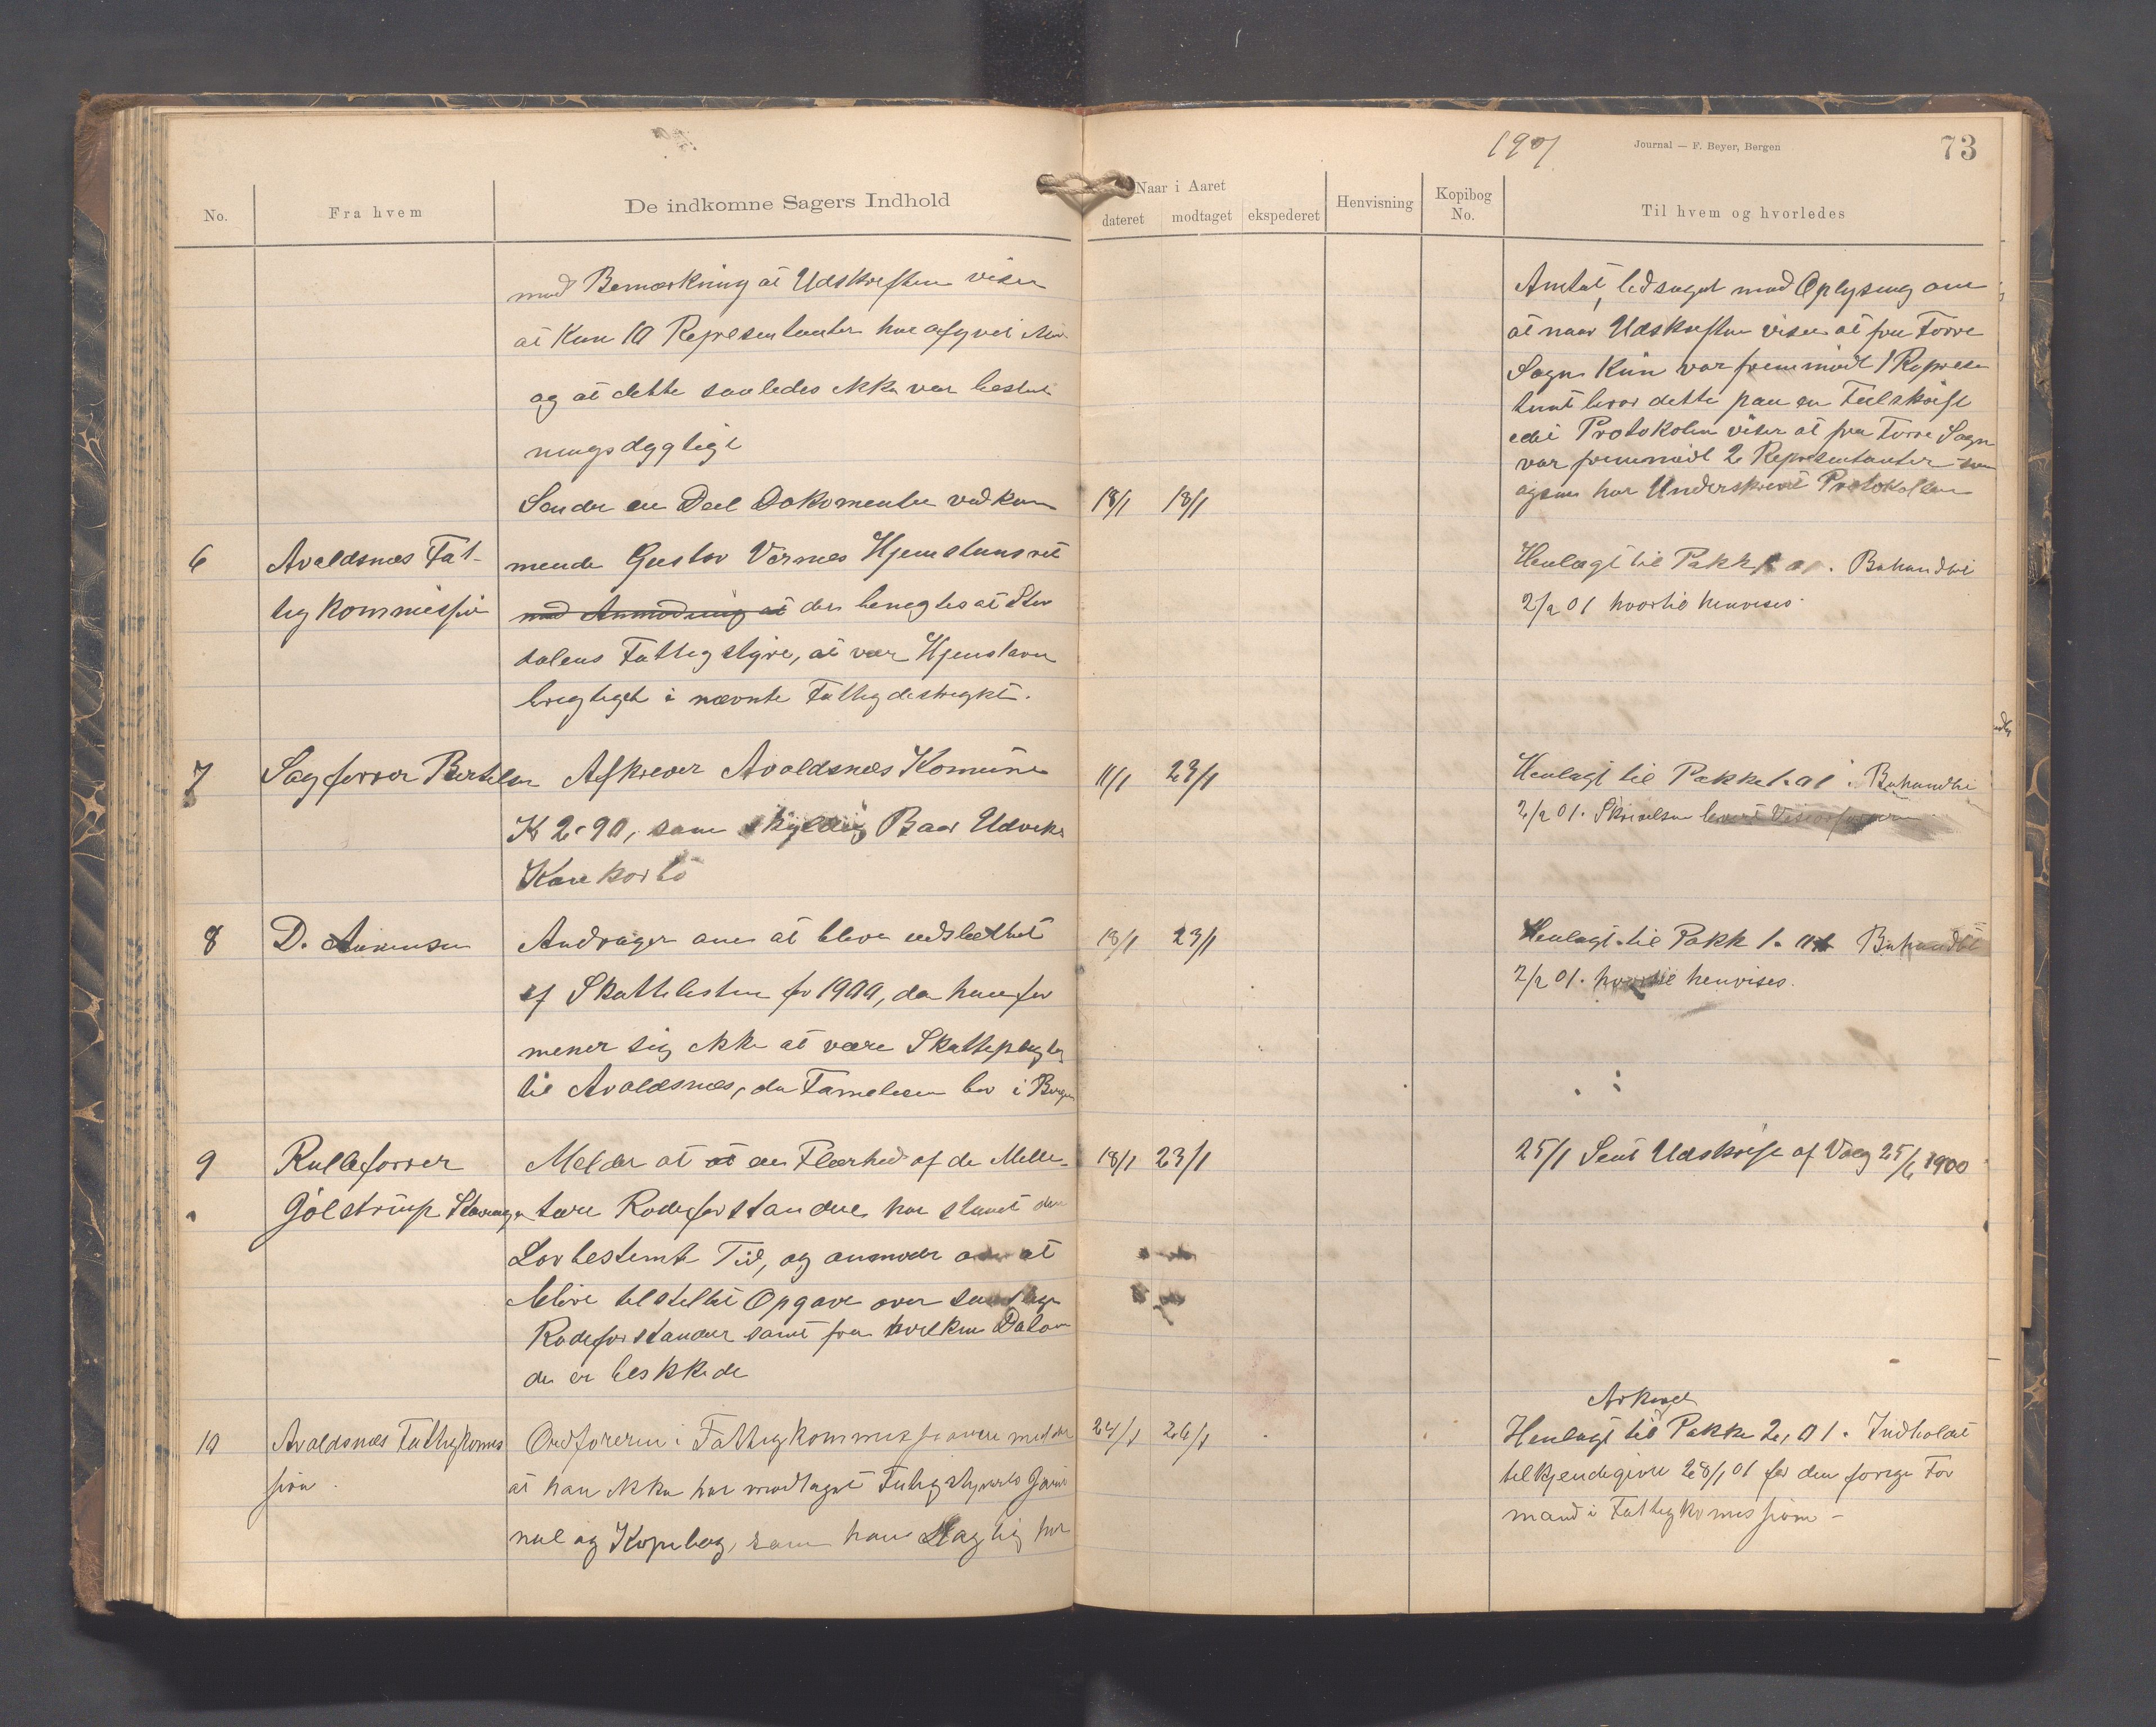 1901
Journal — F. Beyer, Bergen
73
No.
Fra hvem
De indkomne Sagers Indhold
Naar i Aaret
dateret
modtaget
ekspederet
Henvisning
Kopibog No.
Til hvem og hvorledes
med Bemærkning at Udskriften viser
at kun 10 Representanter har afgivet
og at dette saaledes ikke var beslut
ningsdygtigt
Amtet, ledsaget med Oplysning om
at naar Udskriften viser at fra Torve
Sogn kun var fremmødt 1 Represen
tant beror dette paa en Feilskrift
idet Protokolen viser at fra Torve Sogn
var fremmødt 2 Representanter som
ogsaa har Underskrevet Protokollen
6
Avaldsnes Fat-
tigkommission
Sender en Deel Dokomenter vedkom
mende Gustav Varnes Hjemstavnsret
med Anmodning at der benegtes at
dalens Fattigstyre, at vær Hjemstavns
brigtiget i nævnte Fattigdestrykt.
18/1
18/1
Henlagt til Pakke Behandlet
2/2 01 hvortil henvises.
7
Sagfører Bertelsen
Afkrever Avaldsnes Komune
Kr 2.90, som skyldig Baar Udvik
11/1
23/1
Henlagt til Pakke 1.01. Behandlet
2/2 01. Skrivelsen
8
D.
Andrager om at bleve udslettet
af Skattelisten for 1900, da han for
mener sig ikke at være Skattepligtig
til Avaldsnes, da Famelien bor i Bergen
18/1
23/1
Henlagt til Pakk 1. 01 Behandlet
2/2 01. hvortil henvises.
9
Rulleførrer
Gölstrup Stavanger
Melder at at en Flerhed af de Mille-
tære Rodeforstandere har stanet den
Lovbestemte Tid, og anmoder om at
blive tilstellet Opgave over samtlige
Rodeforstander samt fra hvilken Datum
de er beskkede
18/1
23/1
25/1 Sent Udskrift af Valg 25/6 1900
10
Avaldsnes Fattigkomis
sion.
Ordføreren i Fattigkommissionen melder
at han ikke har modtaget Fatigstyrets Jour
nal og Kopibog, som han
24/1
26/1
Arkivet
Henlagt til Pakke 2, 01. Indholdet
tilkjendegivet 28/1 01 for den forige For
mand i Fattigkomissionen -